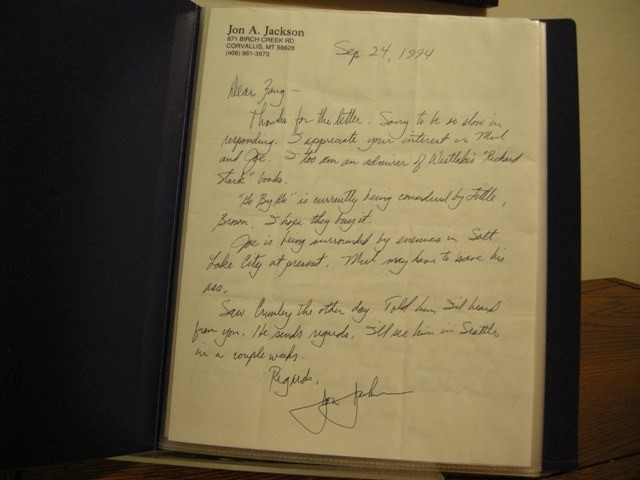 Jon A. Jackson
871 BIRCH CREEK RD.
CORVALLIS, MT 59828
(406) 961-3973
Sep. 24, 1994
Dear Fang —
Thanks for the letter. Sorry to be so slow in
responding. I appreciate your interest in Mul
and Joe. I too am an admirer of Westlake's "Richard
Stark" books.
"Go By Go" is currently being considered by Little,
Brown. I hope they buy it.
Joe is being surrounded by enemies in Salt
Lake City at present. Mul may have to save his
ass.
Saw Crumley the other day. Told him I'd heard
from you. He sends regards. I'll see him in Seattle
in a couple weeks.
Regards,
Jon Jackson